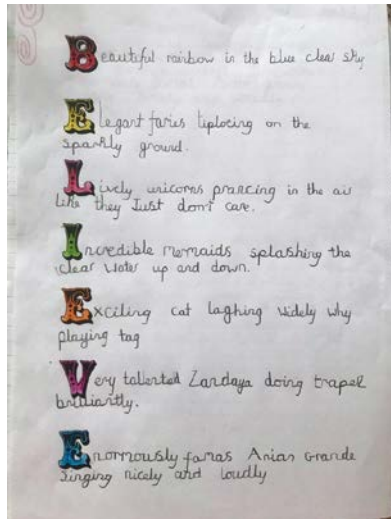 Beautiful rainbow in the blue clear sky
Elegant faries tiptoeing on the
sparkly ground.
Lively unicorns prancing in the air
like they Just don't care.
Incredible mermaids splashing the
clear water up and down.
Exciting cat laghing widely why
playing tag
Very talented Zandaya doing trapel
brilliantly.
Enormously famas Arian Grande
singing nicely and loudly